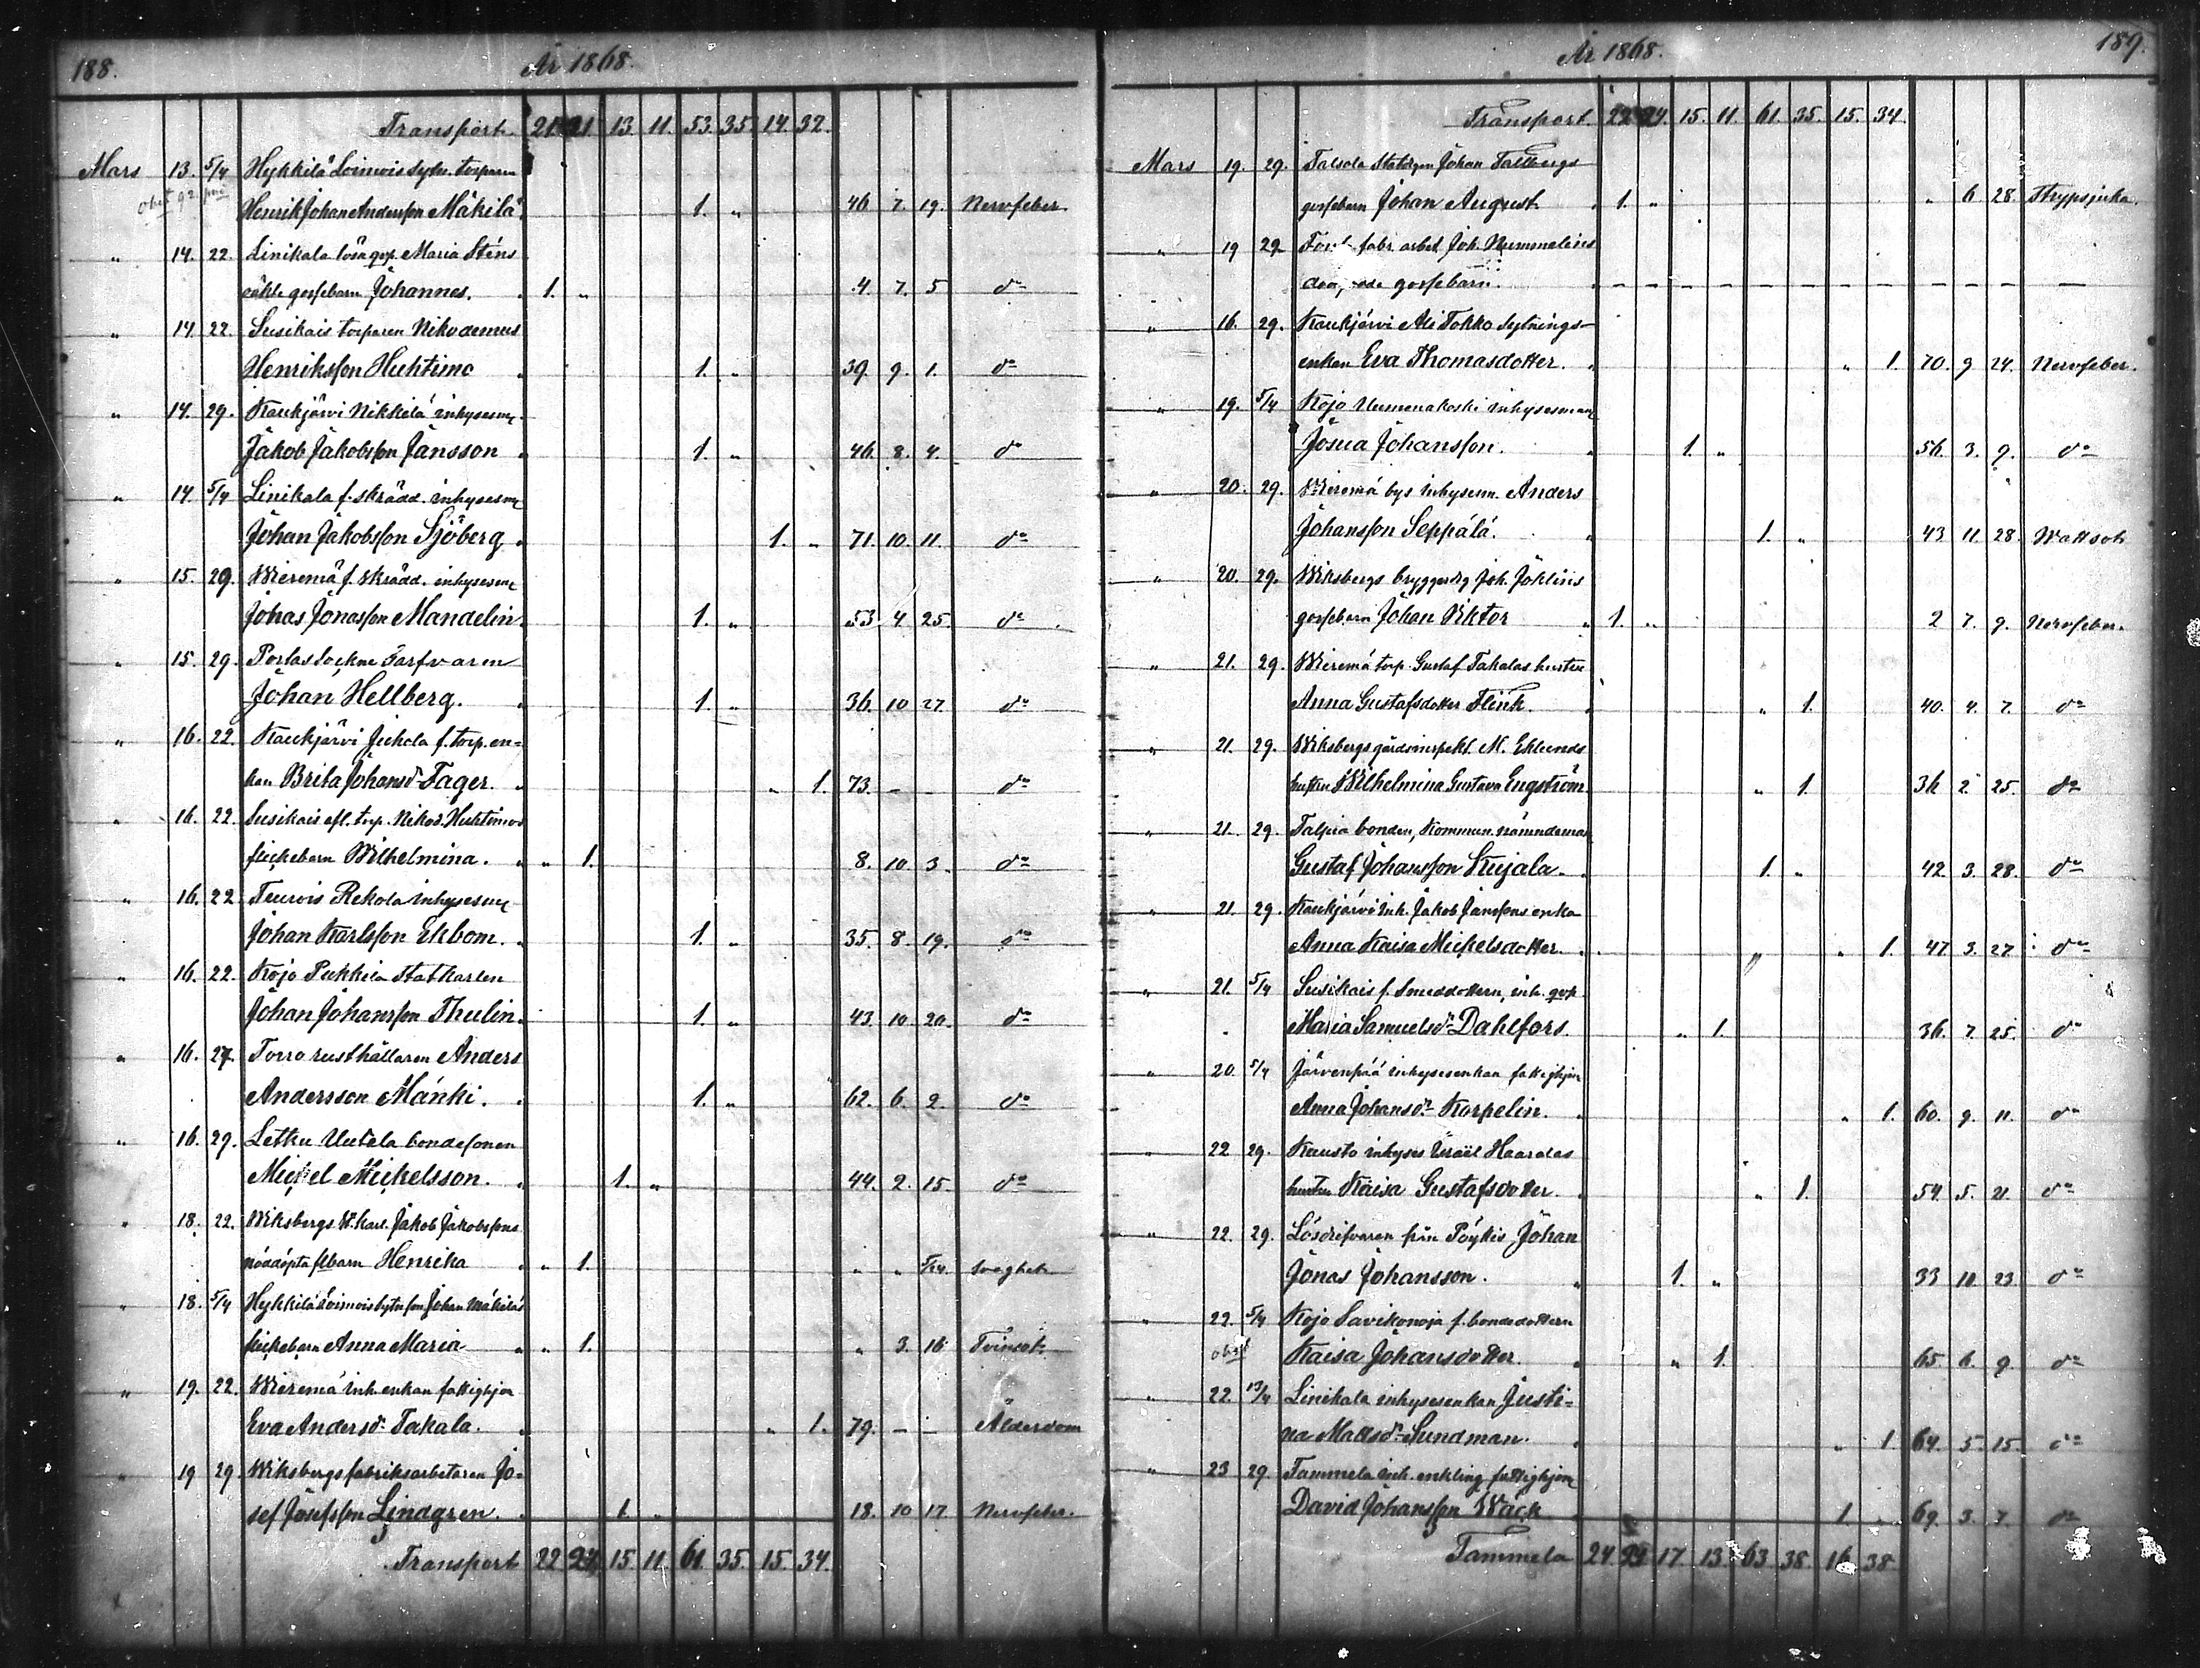 188. År 1868.
Transport. 21. 21. 13. 11. 53. 35. 14. 32.
Mars 13. 5/4 Hykkilä Loimois sytn. torparen
Henrik Johan Andersson Mäkilä. 1. „ 46. 7. 19. Nervfeber
„ 14. 22. Linikala lösa qvp. Maria Sténs
oäkte gossebarn Johannes. 1. „ 4. 7. 5 do
„ 14. 22. Susikais torparen Nikodemus
Henriksson Huhtimo 1. „ 39. 9. 1. do
„ 14. 29. Kaukjärvi Nikkilä inhysesm.
Jakob Jakobsson Jansson 1. „ 46. 8. 4. do
„ 14. 5/4 Linikala f. skrädd. inhysesm
Johan Jakobsson Sjöberg 1. „ 71. 10. 11. do
„ 15. 29. Wieremä f. skrädd. inhysesm
Johas Jonasson Mandelin. 1. „ 53 4 25. do
„ 15. 29. Portas sockne garfvaren
Johan Hellberg. 1. „ 36. 10 27. do
„ 16. 22. Kaukjärvi Jukola f. torp. en=
kan Brita Johansdr Fager. „ 1. 73. – do
„ 16. 22. Susikais efl. torp. Nikod. Huhtimos
flickebarn Wilhelmina. „ 1. 8. 10 3. do
„ 16. 22 Teurois Rekola inhysesm
Johan Karlsson Ekbom. 1. „ 35. 8. 19. do
„ 16. 22. Kojo Pukkila statkarlen
Johan Johansson Thulin. 1. „ 43. 10. 20. do
„ 16. 27. Torro rusthållaren Anders
Andersson Mänki. 1. „ 62. 6. 2. do
„ 16. 29. Letku Uutala bondesonen
Mickel Mickelsson. 1. „ 44. 2. 15. do
„ 18. 22. Wiksbergs st. karl. Jakob Jakobssons
nöddöpta flbarn Henrika „ 1. „ „ 5/24.
„ 18. 5/4 Hykkilä Loimois sytn son Johan Mäkiläs
flickebarn Anna Maria „ 1. „ 3. 16 Tvinsot.
„ 19. 22. Wieremä inh. enkan fattighjon
Eva Andersdr Takala. „ 1. 79. – – Ålderdom
„ 19 29. Wiksbergs fabriksarbetaren Jo=
sef Josefsson Lindgren. 1. „ 18. 10 17. Nervfeber.
Transport 22 24. 15. 11. 61. 35. 15. 34.
År 1868. 189.
Transport. 22 24. 15. 11. 61. 35. 15. 34.
Mars 19. 29. Talsola Johan Tallbergs
gossebarn Johan August. 1. „ „ 6 28. Strypsjuka.
„ 19 29 fabr. arbet. Joh. Nummelins
gossebarn. – – – – – – – – – – – –
„ 16. 29. Kaukjärvi Ali Tokko sytnings-
enkan Eva Thomasdotter. „ 1. 70. 9 24. Nervfeber.
„ 19. 5/4 Kojo inhysesman
Josua Johansson. 1. „ 56. 3. 9. do
„ 20. 29. Wieremä bys inhysem. Anders
Johansson Seppälä. 1. „ 43 11. 28. Wattsot
„ 20. 29. Wiksbergs bryggerdrg Joh. Johlins
gossebarn Johan Viktor 1. „ 2 7. 9. Nervfeber.
„ 21. 29. Wieremä torp. Gustaf Takalas hustru
Anna Gustafsdotter Flink. „ 1. 40. 4. 7. do
„ 21. 29. Wiksbergs gårdsinspekt. M. Eklunds
hustru Wilhelmina Gustava Engström „ 1. 36 2 25. do
„ 21. 29. Talpia bonden, Kommun. nämndeman
Gustaf Johansson Kujala. 1. „ 42 3. 28. do
„ 21. 29. Kaukjärvi inh. Jakob Janssons enka
Anna Kaisa Mickelsdotter. „ 1. 47 3. 27. do
„ 21. 5/4 Susikais f. Smeddottern, inh. qvp.
Maria Samuelsdr Dahlfors. „ 1. 36. 7. 25. do
„ 20. 5/4 Järvenpää inhysesenkan fattighjon
Anna Johansdr Korpelin. „ 1. 60. 9. 11. do
„ 22 29. Kuusto inhyses Israël Haaralas
hustru Kaisa Gustafsdotter. „ 1. 54. 5. 21. do
„ 22. 29. Lösdrifvaren från Pöykis Johan
Jonas Johansson. 1. „ 33 10 23. do
„ 22. 5/4 Kojo Savikonoja f. bondedottern
Kaisa Johansdotter. „ 1. 65. 6. 9. do
„ 22. 13/4 Linikala inhysesenkan Justi=
na Mattsdr Sundman. „ 1 64. 5. 15. do
„ 23 29. Tammela inh. enkling fattighjon
David Johansson Wäck 1. „ 69. 3. 7. do
Tammela 24. 24 17. 13. 63. 38. 16. 38.